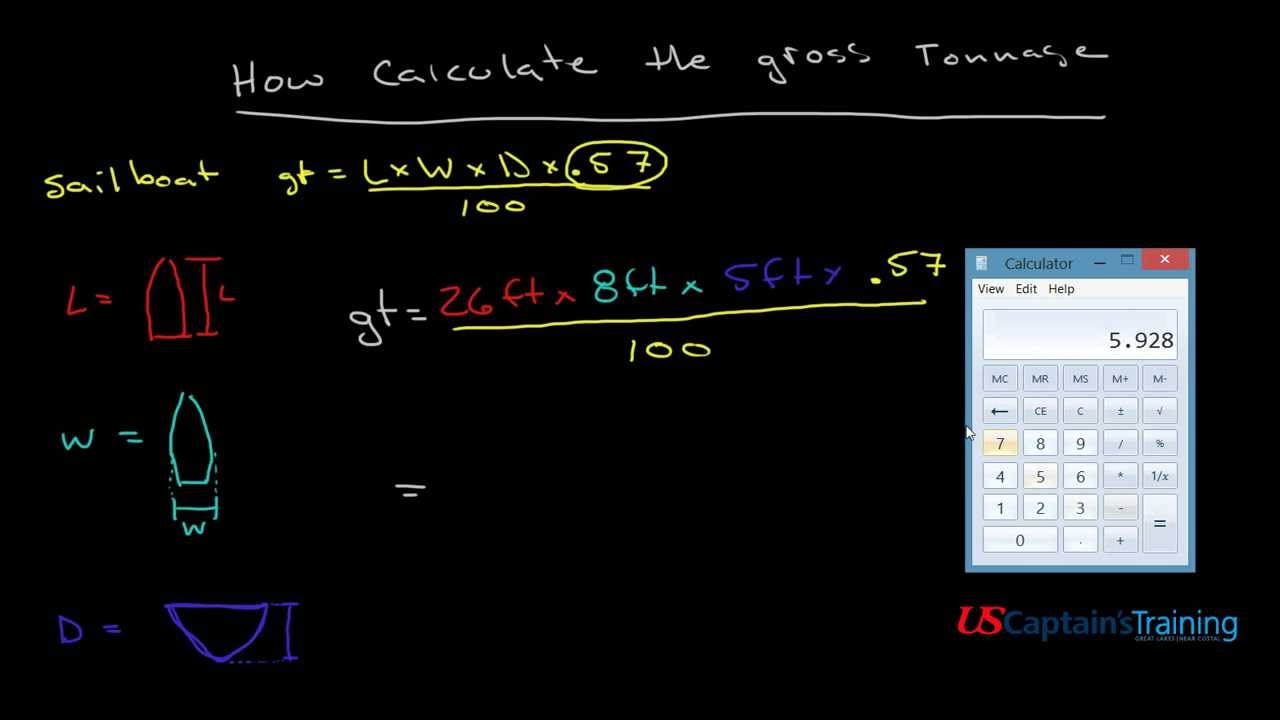 How Calculate the gross Tonnage
sailboat gt = L x W x D x .57
100
L = L
gt = 26ft x 8ft x 5ft x .57
100
W =
W
=
D =
Calculator
View Edit Help
5.928
MC MR MS M+ M-
← CE C ± √
7 8 9 / %
4 5 6 * 1/x
1 2 3 - =
0 . +
US Captain'sTraining
GREAT LAKES | NEAR COSTAL